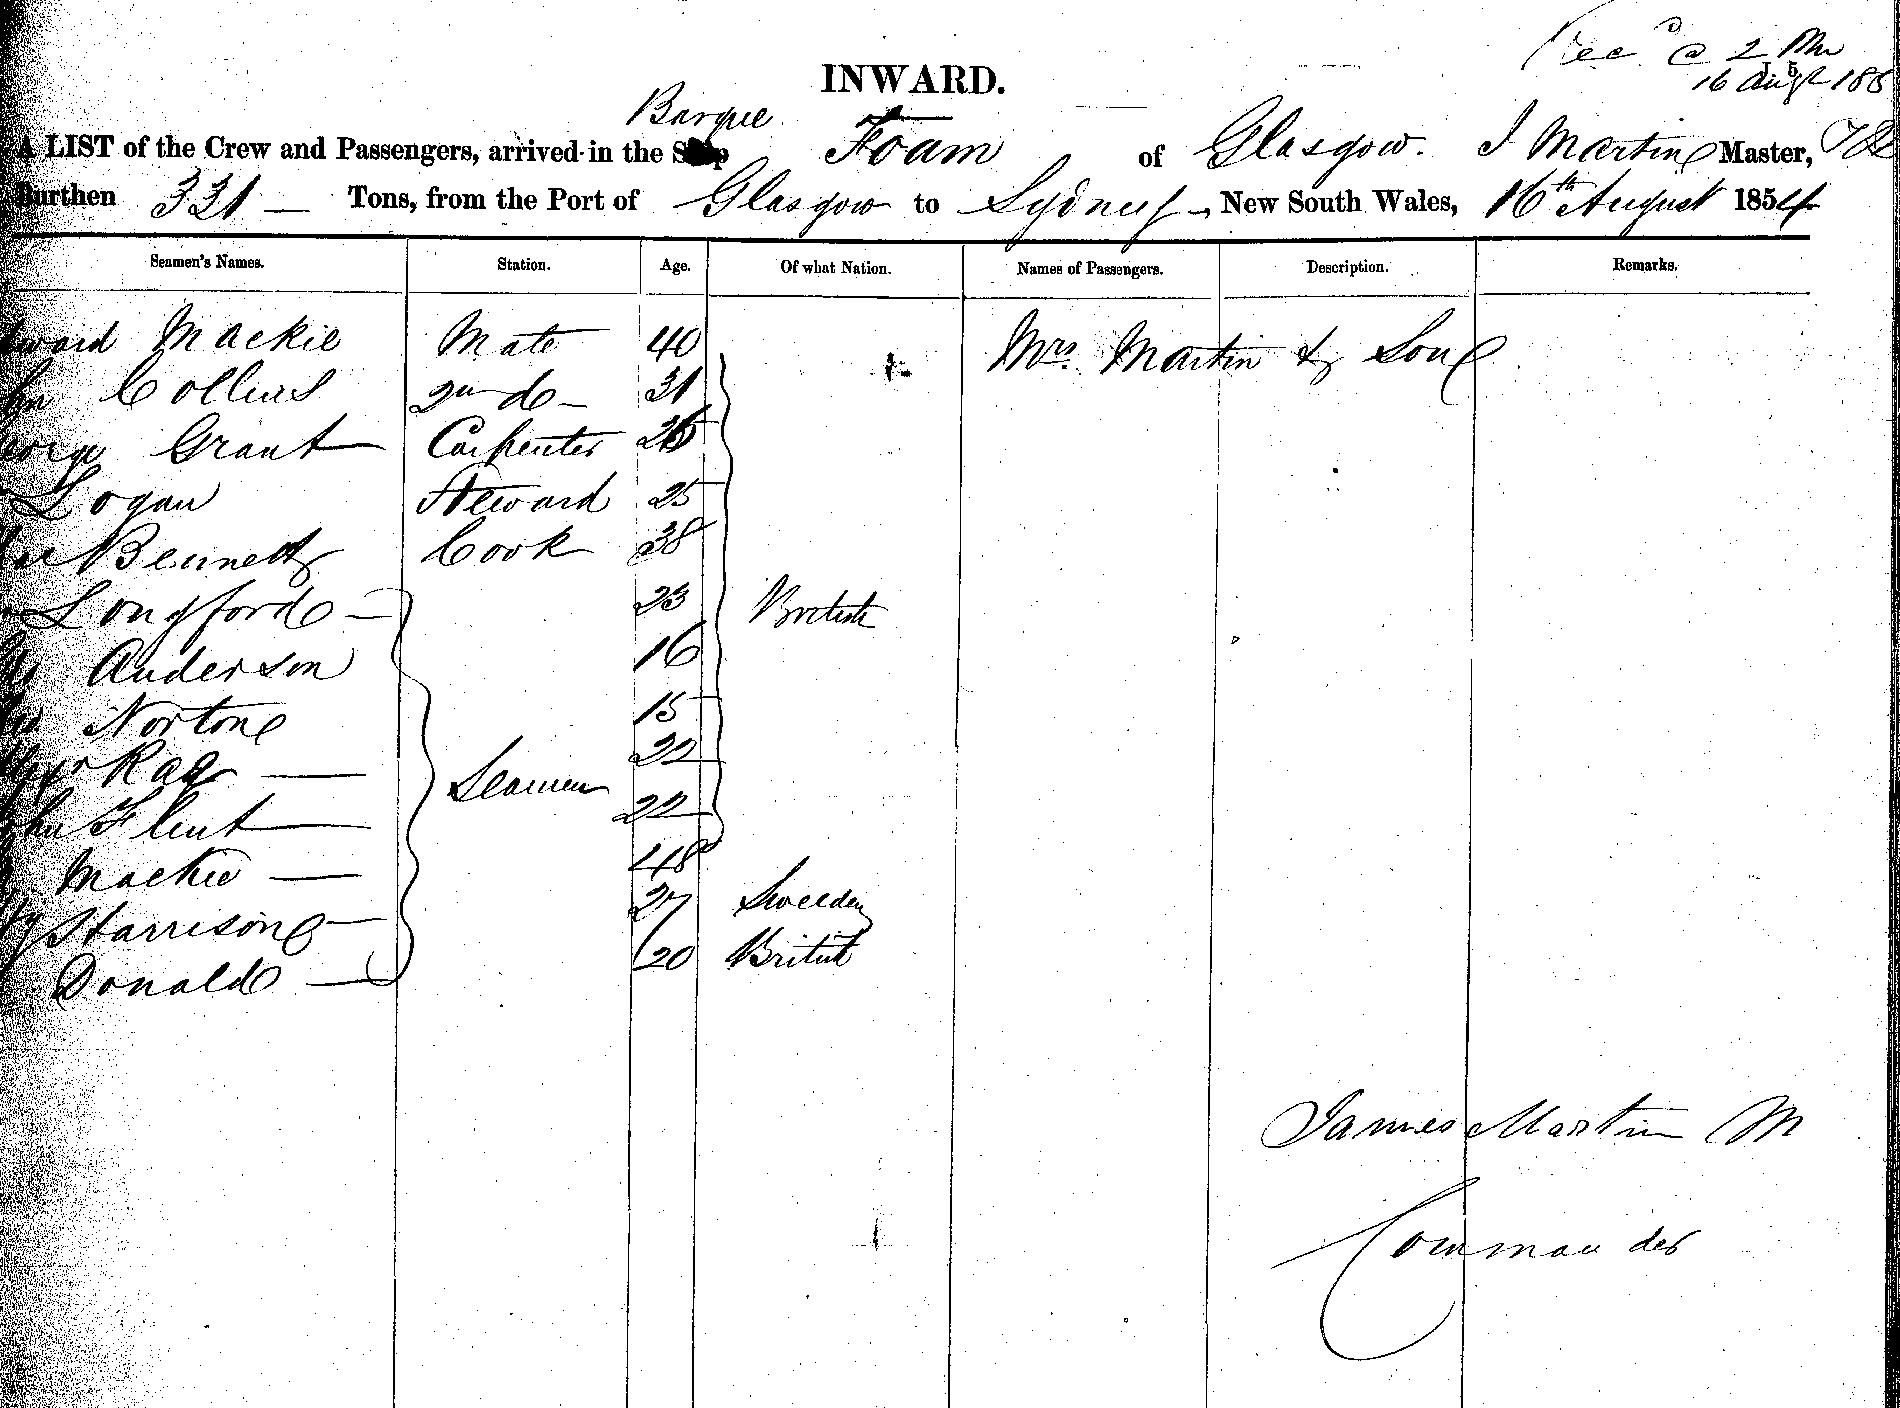 Rec^d @ 2 PM
16 Augt 185
INWARD.
Barque
A LIST of the Crew and Passengers, arrived in the Ship Foam of Glasgow. J Martin Master,
Burthen 331 — Tons, from the Port of Glasgow to Sydney, New South Wales, 16th August 1854
Seamen's Names. Station. Age. Of what Nation. Names of Passengers. Description. Remarks.
Mackie Mate 40 Mrs. Martin & Son
Collins 2nd do — 31
George Grant Carpenter
Logan Steward 25
Bennett Cook 38
Longford — 23 British
Anderson 16
Norton 15
Rae — 22
John Flint Seamen 22
Mackie — 48
Harrison 27 Sweeden
Donald — 20 British
James Martin M
Commander